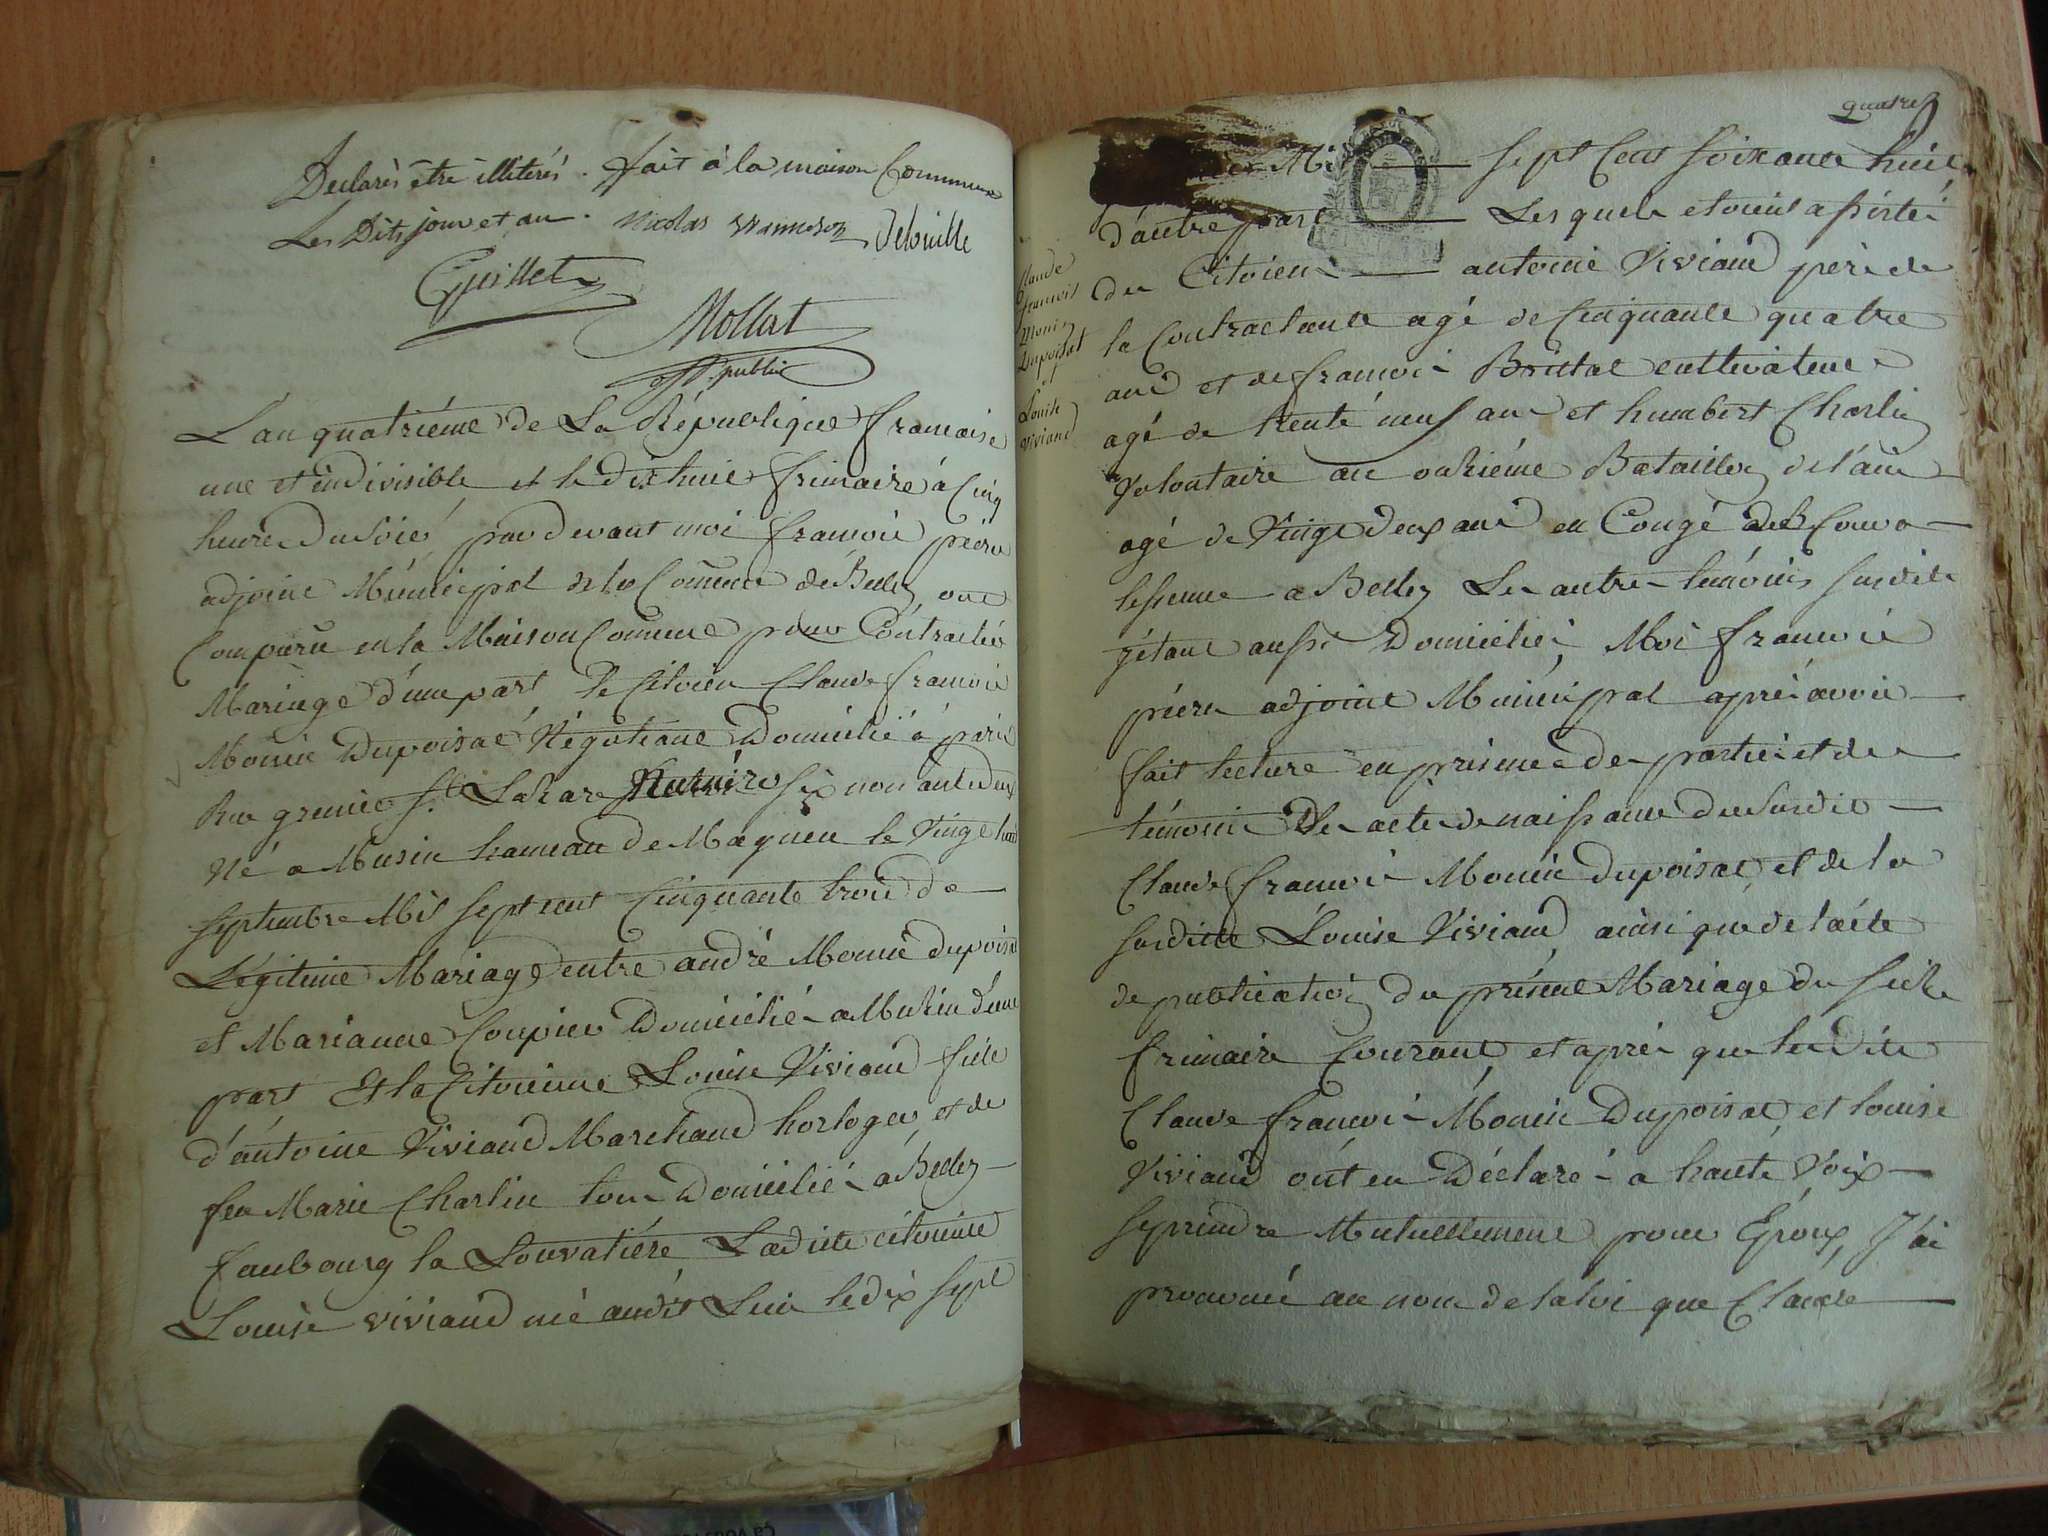 Declarés être illiterés. fait à la maison Commune
Les Dits jour et an. Nicolas Delouille
Guillet
Mollat
public
L'an quatriéme de La République francaise
une et indivisible et le dix huit frimaire à cinq
heure du Soir par devant moi francois
adjoint Municipal de la Comune de Belley ont
Comparu en la Maison Comune pour Contracter
Mariage d'une part le Citoien Claude francois
Monin Dupoisat Négotiant Domicilié à paris
Rue grenier St Lazare Numéro six nonante deux
Né a Musin hameau de Magnieu le Vingt
septembre Mil sept cent Cinquante trois de
Légitime Mariage entre andré Monin dupoisat
et Marianne Coupier Domicilié a Musin d'une
part Et la Citoienne Louise Viviand fille
d'antoine Viviand Marchand horloger et de
feu Marie Charlin tous Domicilié à Belley
faubourg la Louvatiére Ladite citoienne
Louise viviand né audit Lieu le dix sept
quatre
Mil sept Cent soixante huit
d'autre part Lesquels etoient assistés
du Citoien antoine Viviand pere de
la Contractante agé de Cinquante quatre
ans et de francois Bristal cultivateur
agé de trente neuf ans et humbert Charlin
Volontaire au onziéme Bataillon de l'ain
agé de Vingt deux ans en Congé de Conva
lessence a Belley Les autres temoins susdits
y étant aussi Domiciliés, Moi francois
adjoint Municipal aprés avoir
fait lecture en presence des parties et des
témoins Des actes de naissance du susdit
Claude francois Monin dupoisat et de la
susditte Louise Viviand ainsi que de l'acte
de publication du présent Mariage du seize
frimaire Courant, et aprés que lesdits
Claude francois Monin Dupoisat, et louise
Viviand ont eu Déclaré a haute Voix
se prendre Mutuellement pour Époux, J'ai
prononcé au nom de la loi que Claude
Claude
francois
Monin
Dupoisat
et
Louise
viviand